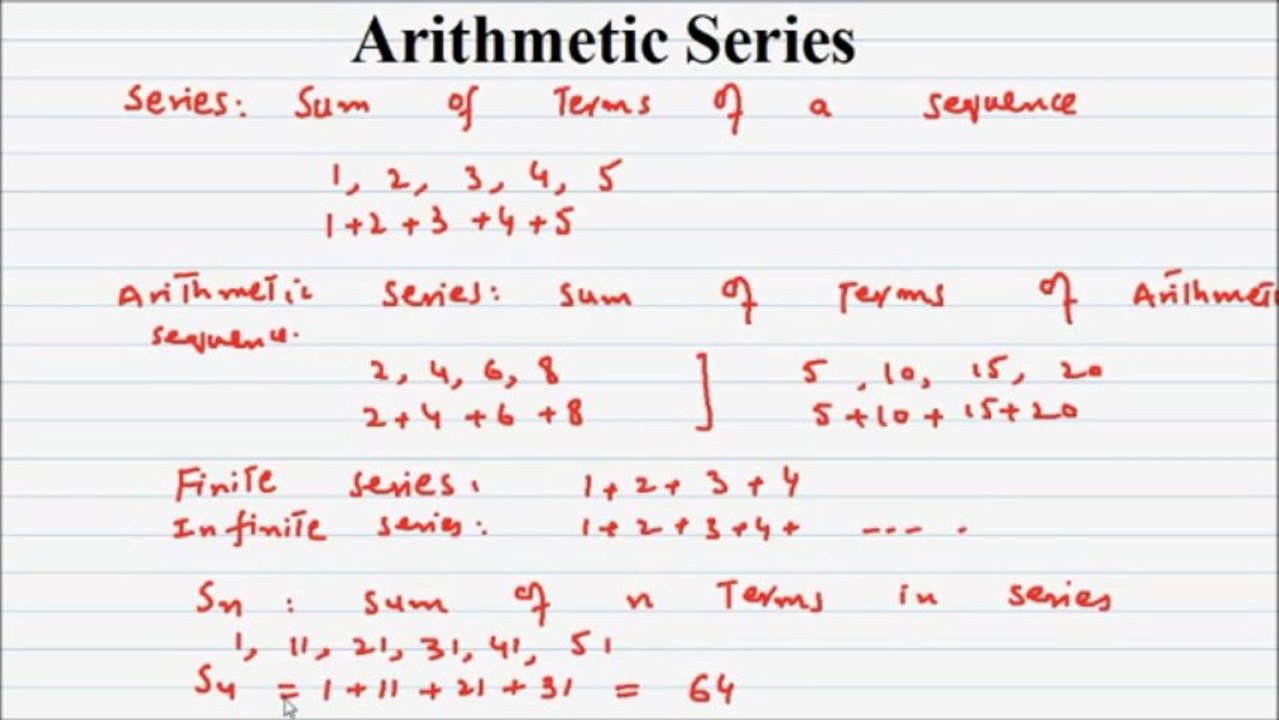 Arithmetic Series
Series: Sum of Terms of a sequence
1, 2, 3, 4, 5
1+2+3+4+5
Arithmetic series: sum of Terms of Arithmeti
sequence.
2, 4, 6, 8 ] 5, 10, 15, 20
2+4+6+8 5+10+15+20
Finite series: 1+2+3+4
Infinite series: 1+2+3+4+ ---- .
Sn : sum of n Terms in series
1, 11, 21, 31, 41, 51
S4 = 1+11+21+31 = 64